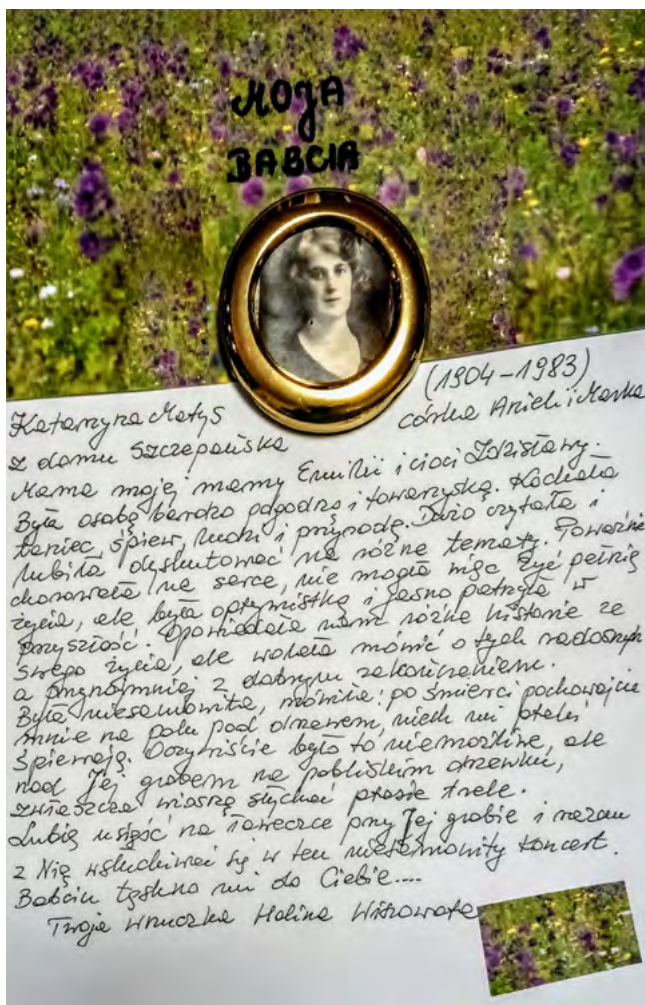 MOJA
BABCIA
(1904-1983)
Katarzyna Matys córka Anieli i Marka
z domu Szczepańska
Mama mojej mamy Emilii i cioci Zdzisławy.
Była osobą bardzo pogodną i towarzyską. Kochała
taniec, śpiew, ludzi i przyrodę. Dużo czytała i
lubiła dyskutować na różne tematy. Poważnie
chorowała na serce, nie mogła więc żyć pełnią
życia, ale była optymistką i jasno patrzyła w
przyszłość. Opowiadała nam różne historie ze
swego życia, ale wolała mówić o tych radosnych
a przynajmniej z dobrym zakończeniem.
Była niesamowita, mówiła: po śmierci pochowajcie
mnie na polu pod drzewem, niech mi ptaki
śpiewają. Oczywiście było to niemożliwe, ale
nad Jej grobem na pobliskim drzewku,
zwłaszcza wiosną słychać ptasie trele.
Lubię usiąść na ławeczce przy Jej grobie i razem
z Nią wsłuchiwać się w ten niesamowity koncert.
Babciu tęskno mi do Ciebie....
Twoja wnuczka Halina